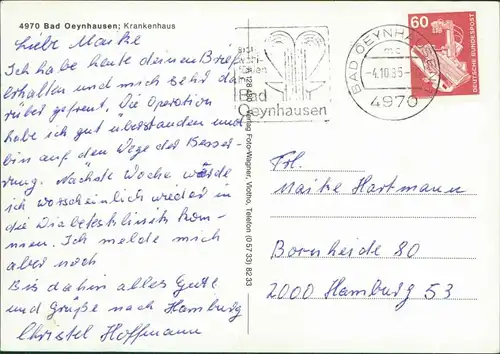 4970 Bad Oeynhausen; Krankenhaus
Liebe Maike
Ich habe heute deinen Brief
erhalten und mich sehr da-
rüber gefreut. Die Operation
habe ich gut überstanden und
bin auf den Wege der Besser-
rung. Nächste Woche werde
ich warscheinlich wieder in
die Diabetesklinik kom-
men. Ich melde mich
aber noch
Bis dahin alles Gute
und Grüße nach Hamburg
Christel Hoffmann
Verlag Foto-Wagner, Vlotho, Telefon (0 57 33) 82 33
Bad
Oeynhausen
BAD OEYNHAUSEN
-4.10.85-
4970
60
DEUTSCHE BUNDESPOST
Frl.
Maike Hartmann
Bornheide 80
2000 Hamburg 53